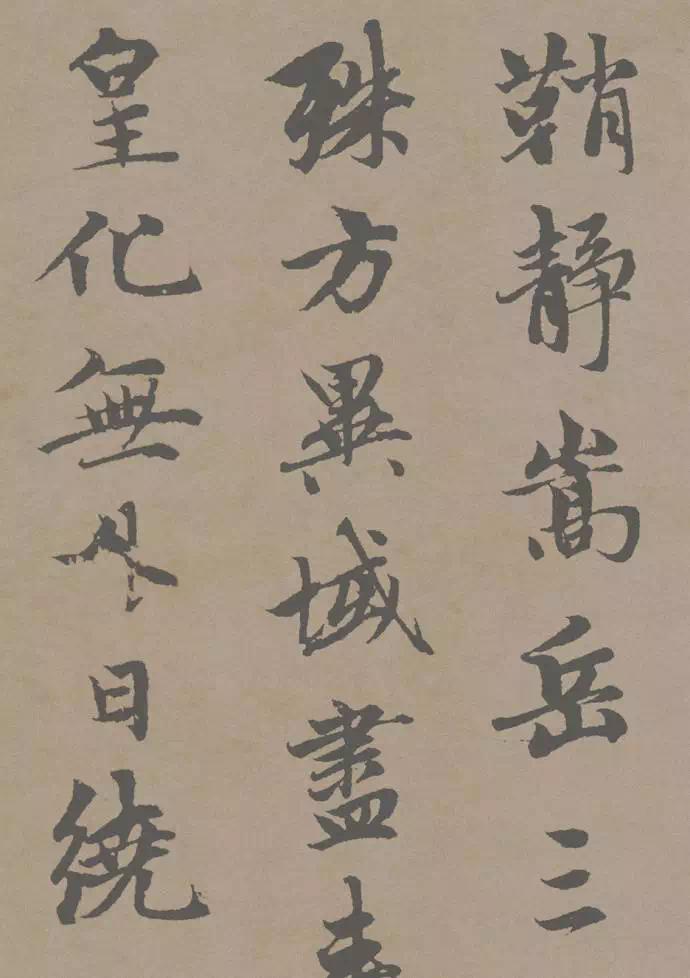 鞘靜嵩岳三
殊方異域盡
皇化無日繞